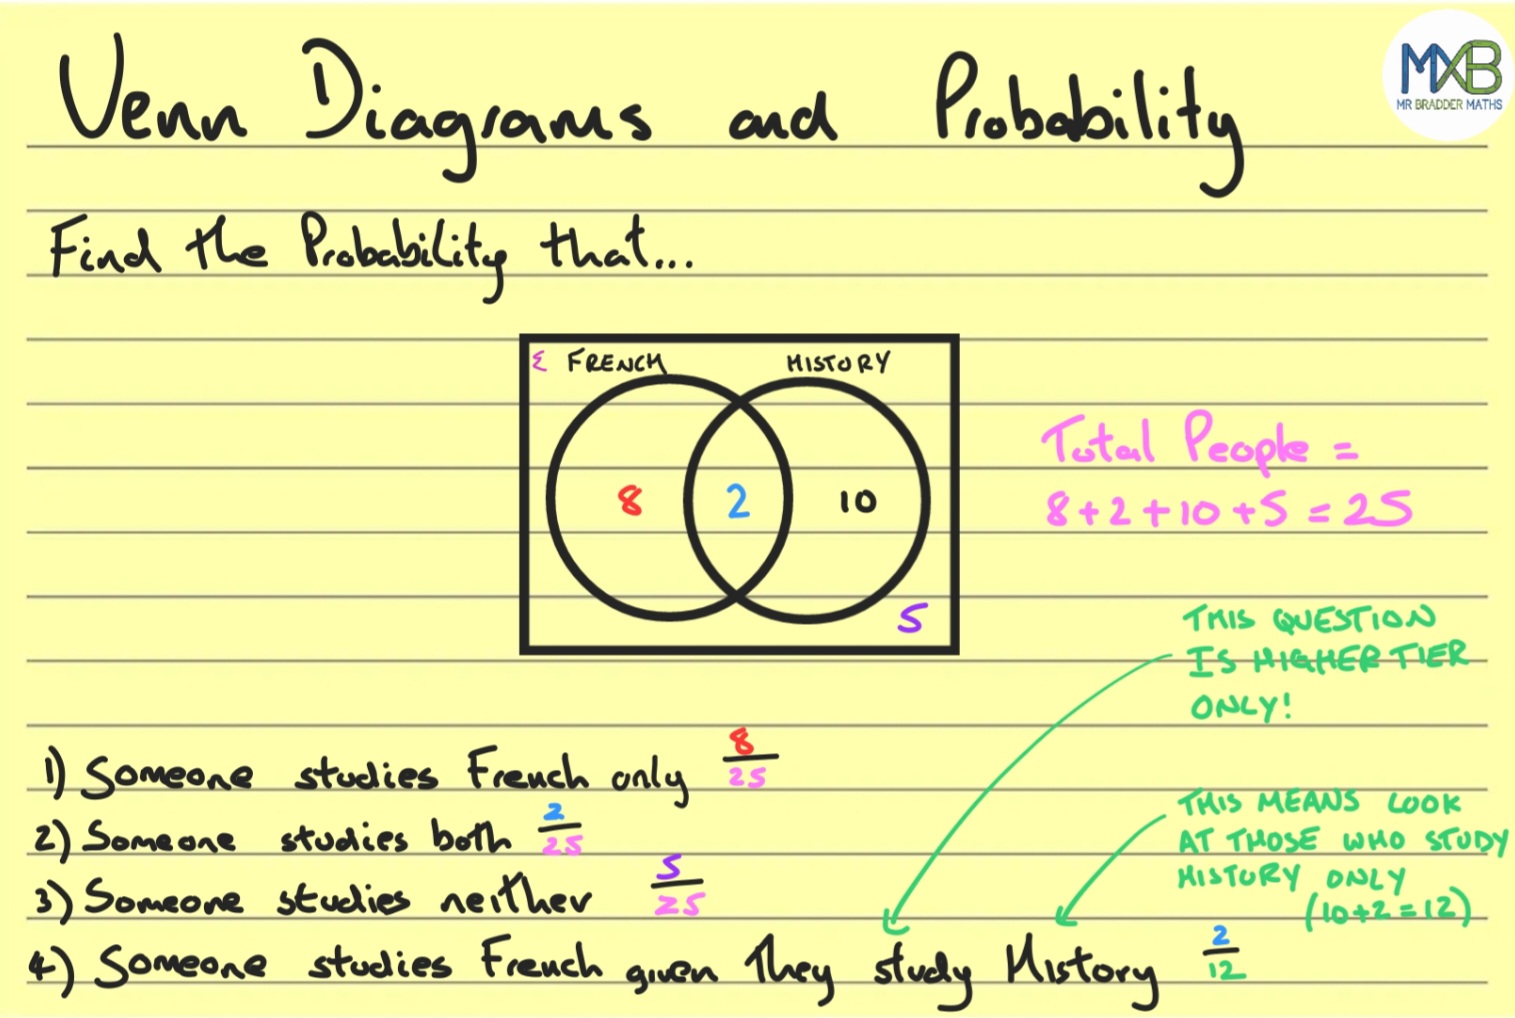 Venn Diagrams and Probability
MXB
MR BRADDER MATHS
Find the Probability that...
ξ FRENCH HISTORY
8 2 10
5
Total People =
8+2+10+5=25
THIS QUESTION
IS HIGHER TIER
ONLY!
1) Someone studies French only 8/25
2) Someone studies both 2/25
3) Someone studies neither 5/25
THIS MEANS LOOK
AT THOSE WHO STUDY
HISTORY ONLY
(10+2=12)
4) Someone studies French given They study History 2/12